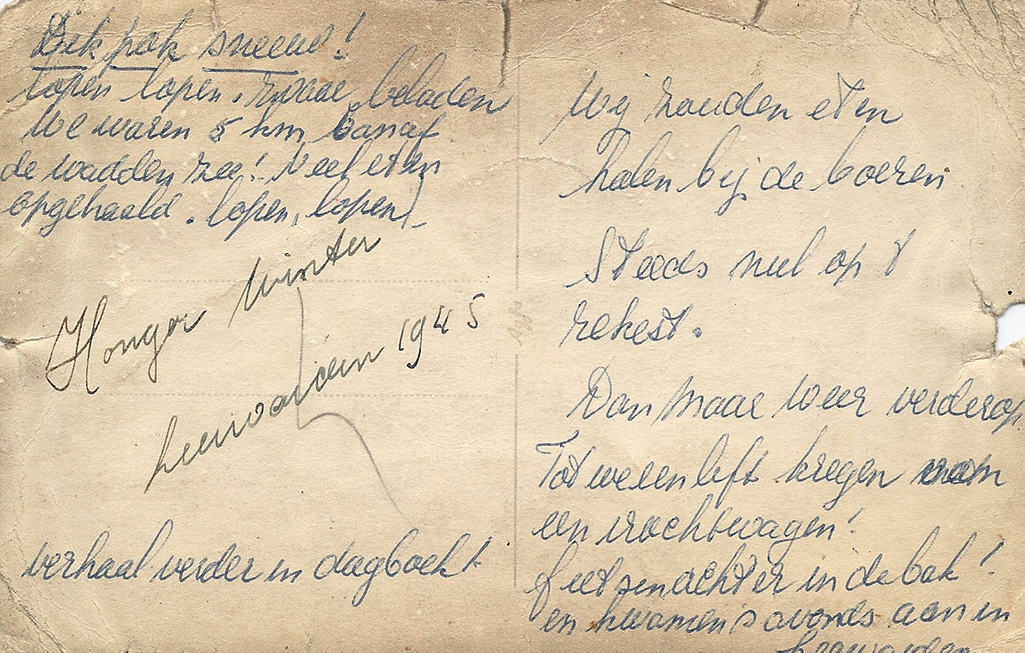 Dik pak sneeuw!
lopen lopen. zwaar beladen
We waren 5 km vanaf
de wadden zee! Veel eten
opgehaald. lopen, lopen!
Honger Winter
Leeuwarden 1945
verhaal verder in dagboek!
Wij zouden eten
halen bij de boeren
Steeds niet op 't
rekest.
Dan maar weer verderop.
Tot we een lift kregen van
een vrachtwagen!
fietsen achter in de bak!
en kwamen 's avonds aan in
Leeuwarden